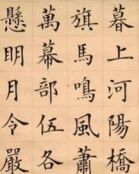 暮上河陽橋
旗馬鳴風蕭
萬幕部伍各
懸明月令嚴